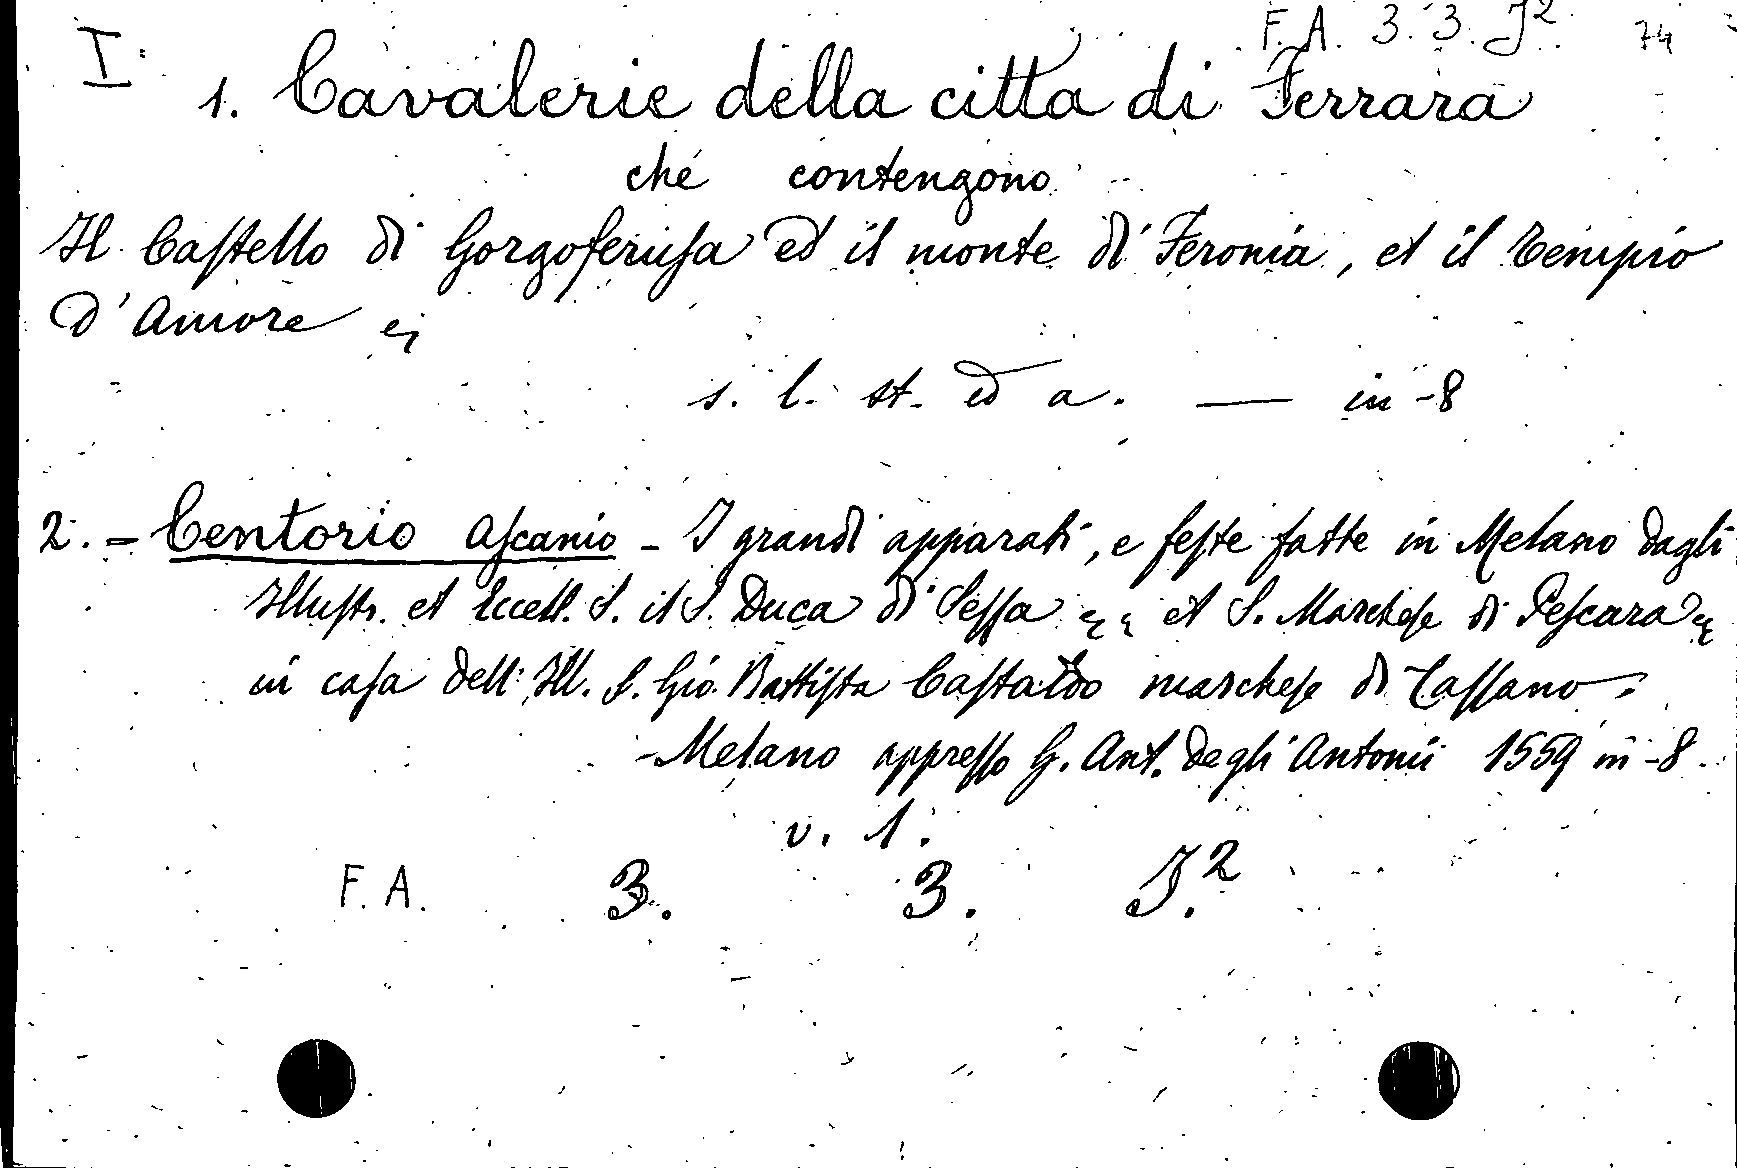 I. F. A. 3. 3. J² 74
1. Cavalerie della citta di Ferrara
che contengono
Il Castello di Gorgoferusa ed il monte di Feronia, et il tempio
d'Amore
s. l. st. ed a. — in-8
2. - Centorio Ascanio - I grandi apparati, e feste fatte in Melano dagli
Illustr. et Eccell. S. il S. Duca di Sessa et S. Marchese di Pescara
in casa dell' Ill. S. Gio. Battista Castaldo marchese di Cassano.
- Melano appresso G. Ant. degli Antonii 1559 in-8.
v. 1.
F. A. 3. 3. J.²